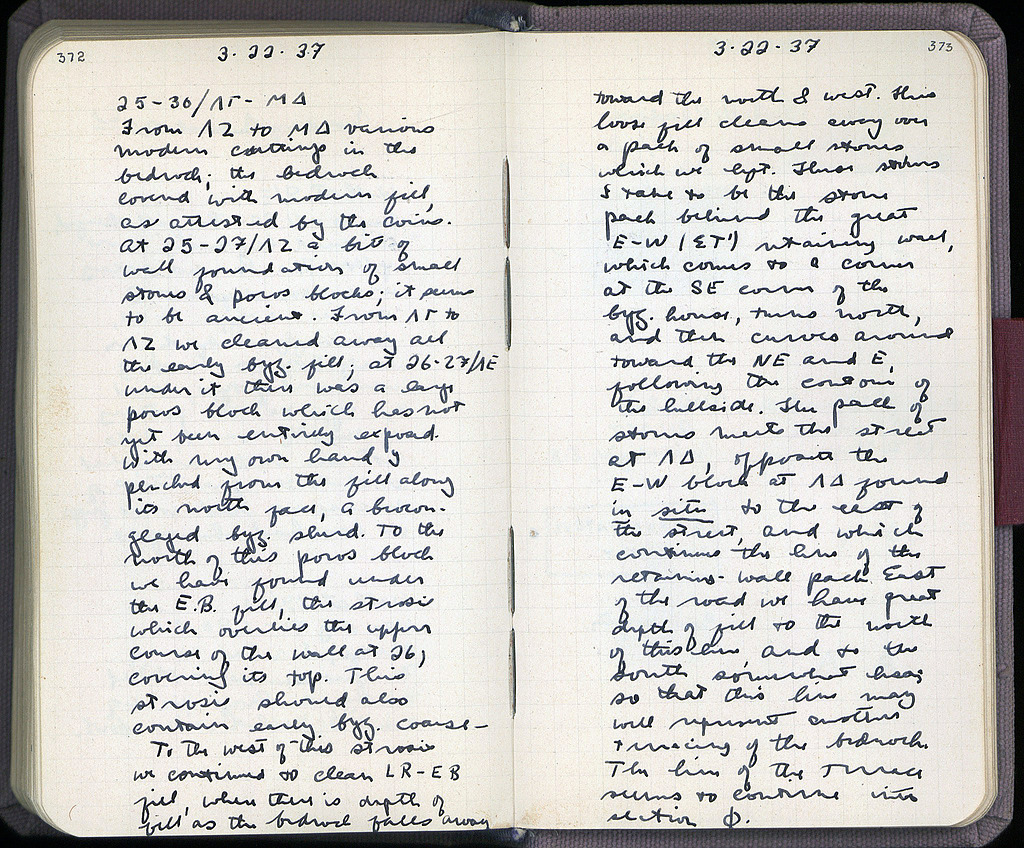 372
3·22·37
25-30/ΛΓ - ΜΔ
From ΛΖ to ΜΔ various
modern cuttings in the
bedrock; the bedrock
covered with modern fill,
as attested by the coins.
At 25-27/ΛΖ a bit of
wall foundation of small
stones & poros blocks; it seems
to be ancient. From ΛΓ to
ΛΖ we cleaned away all
the early byz. fill; at 26-27/ΛΕ
under it there was a large
poros block which has not
yet been entirely exposed.
With my own hand I
pecked from the fill along
its north face, a brown-
glazed byz. sherd. To the
north of this poros block
we have found under
the E.B. fill, the strosis
which overlies the upper
course of the wall at 26,
covering its top. This
strosis should also
contain early byz. coarse-
To the west of this strosis
we continued to clean LR-EB
fill, where there is depth of
fill as the bedrock falls away
373
3·22·37
toward the north & west. This
loose fill cleans away over
a pack of small stones
which we left. These stones
I take to be the stone
pack behind the great
E-W (ΣΤ') retaining wall,
which comes to a corner
at the SE corner of the
byz. house, turns north,
and then curves around
toward the NE and E,
following the contour of
the hillside. The pack of
stones meets the street
at ΛΔ, opposite the
E-W block at ΛΔ found
in situ to the east of
the street, and which
continues the line of the
retaining-wall pack. East
of the road we have great
depth of fill to the north
of this line, and to the
south somewhat less;
so that this line may
well represent another
terracing of the bedrock.
The line of the terrace
seems to continue into
section Φ.